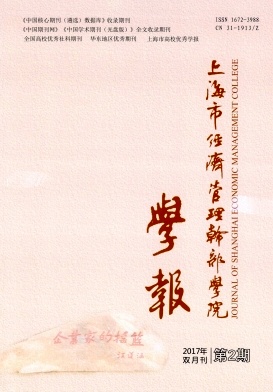 《中国核心期刊（遴选）数据库》收录期刊
《中国期刊网》《中国学术期刊（光盘版）》全文收录期刊
全国高校优秀社科期刊 华东地区优秀期刊 上海市高校优秀学报
ISSN 1672-3988
CN 31-1913/Z
上海市经济管理幹部學院
JOURNAL OF SHANGHAI ECONOMIC MANAGEMENT COLLEGE
學報
企业家的摇篮
2017年
双月刊
第2期